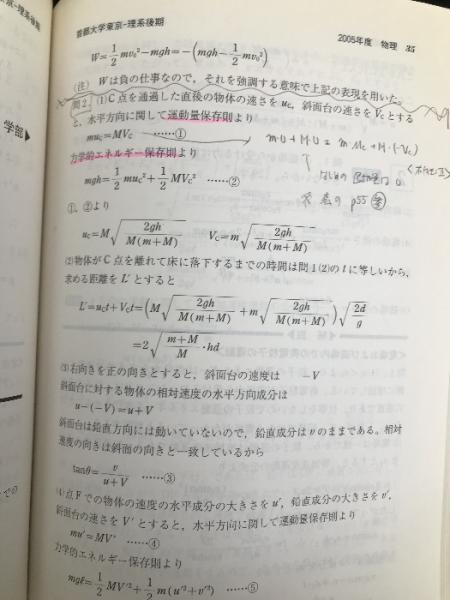 首都大学東京-理系後期
2005年度 物理 35
W=1/2 mv₀²−mgh=−(mgh−1/2 mv₀²)
(注) Wは負の仕事なので,それを強調する意味で上記の表現を用いた。
問2 (1)C点を通過した直後の物体の速さをu_C,斜面台の速さをV_Cとする
と,水平方向に関して運動量保存則より
mu_C=MV_C ……①
力学的エネルギー保存則より
mgh=1/2 mu_C²+1/2 MV_C² ……②
①,②より
u_C=M√(2gh/M(m+M)) V_C=m√(2gh/M(m+M))
(2)物体がC点を離れて床に落下するまでの時間は問1(2)のtに等しいから,
求める距離をL′とすると
L′=u_Ct+V_Ct=(M√(2gh/M(m+M))+m√(2gh/M(m+M)))√(2d/g)
=2√((m+M)/M・hd)
(3)右向きを正の向きとすると,斜面台の速度は −V
斜面台に対する物体の相対速度の水平方向成分は
u−(−V)=u+V
斜面台は鉛直方向には動いていないので,鉛直成分はvのままである。相対
速度の向きは斜面の向きと一致しているから
tanθ=v/(u+V) ……③
(4)点Fでの物体の速度の水平成分の大きさをu′,鉛直成分の大きさをv′,
斜面台の速さをV′とすると,水平方向に関して運動量保存則より
mu′=MV′ ……④
力学的エネルギー保存則より
mgℓ=1/2 MV′²+1/2 m(u′²+v′²) ……⑤
学部▶